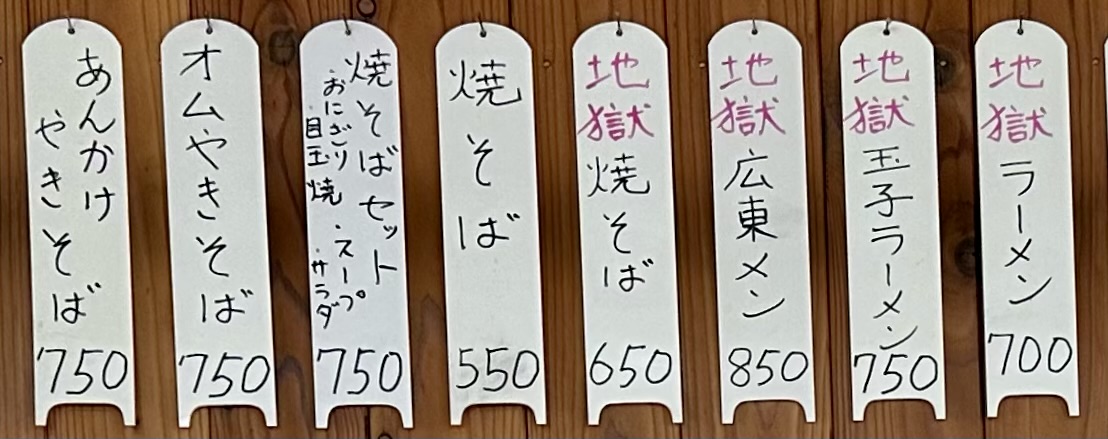 地獄ラーメン
700
地獄玉子ラーメン
750
地獄広東メン
850
地獄焼そば
650
焼そば
550
焼そばセット
おにぎり・スープ
目玉焼 サラダ
750
オムやきそば
750
あんかけ
やきそば
750